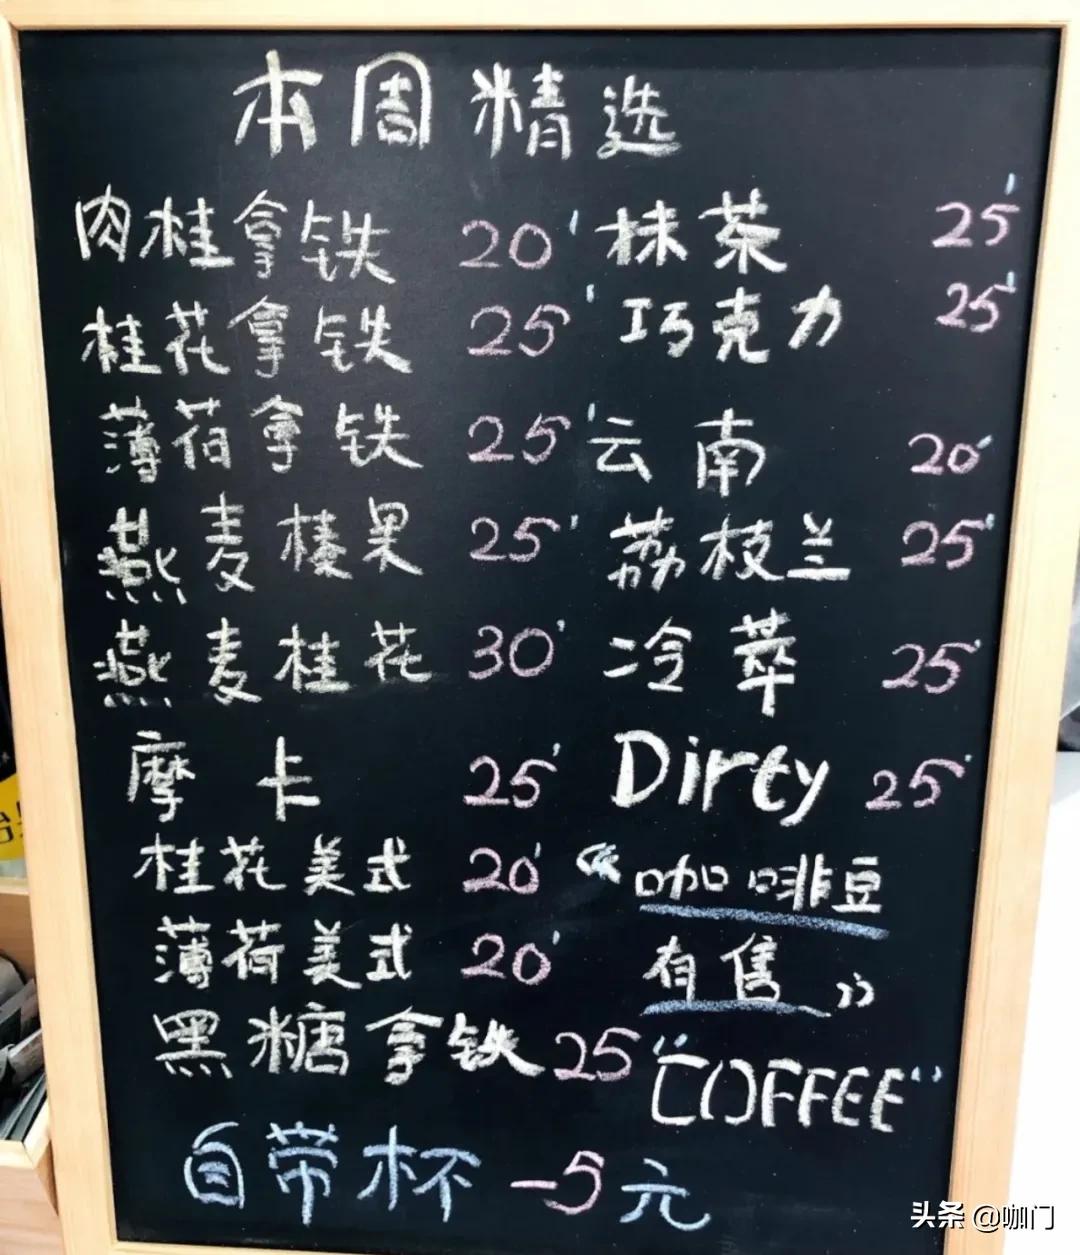 本周精选
肉桂拿铁 20'
桂花拿铁 25'
薄荷拿铁 25'
燕麦榛果 25'
燕麦桂花 30'
摩卡 25'
桂花美式 20'
薄荷美式 20'
黑糖拿铁 25'
抹茶 25'
巧克力 25'
云南 20'
荔枝兰 25'
冷萃 25'
Dirty 25'
“咖啡豆
有售”
“COFFEE”
自带杯 -5元
头条 @咖门